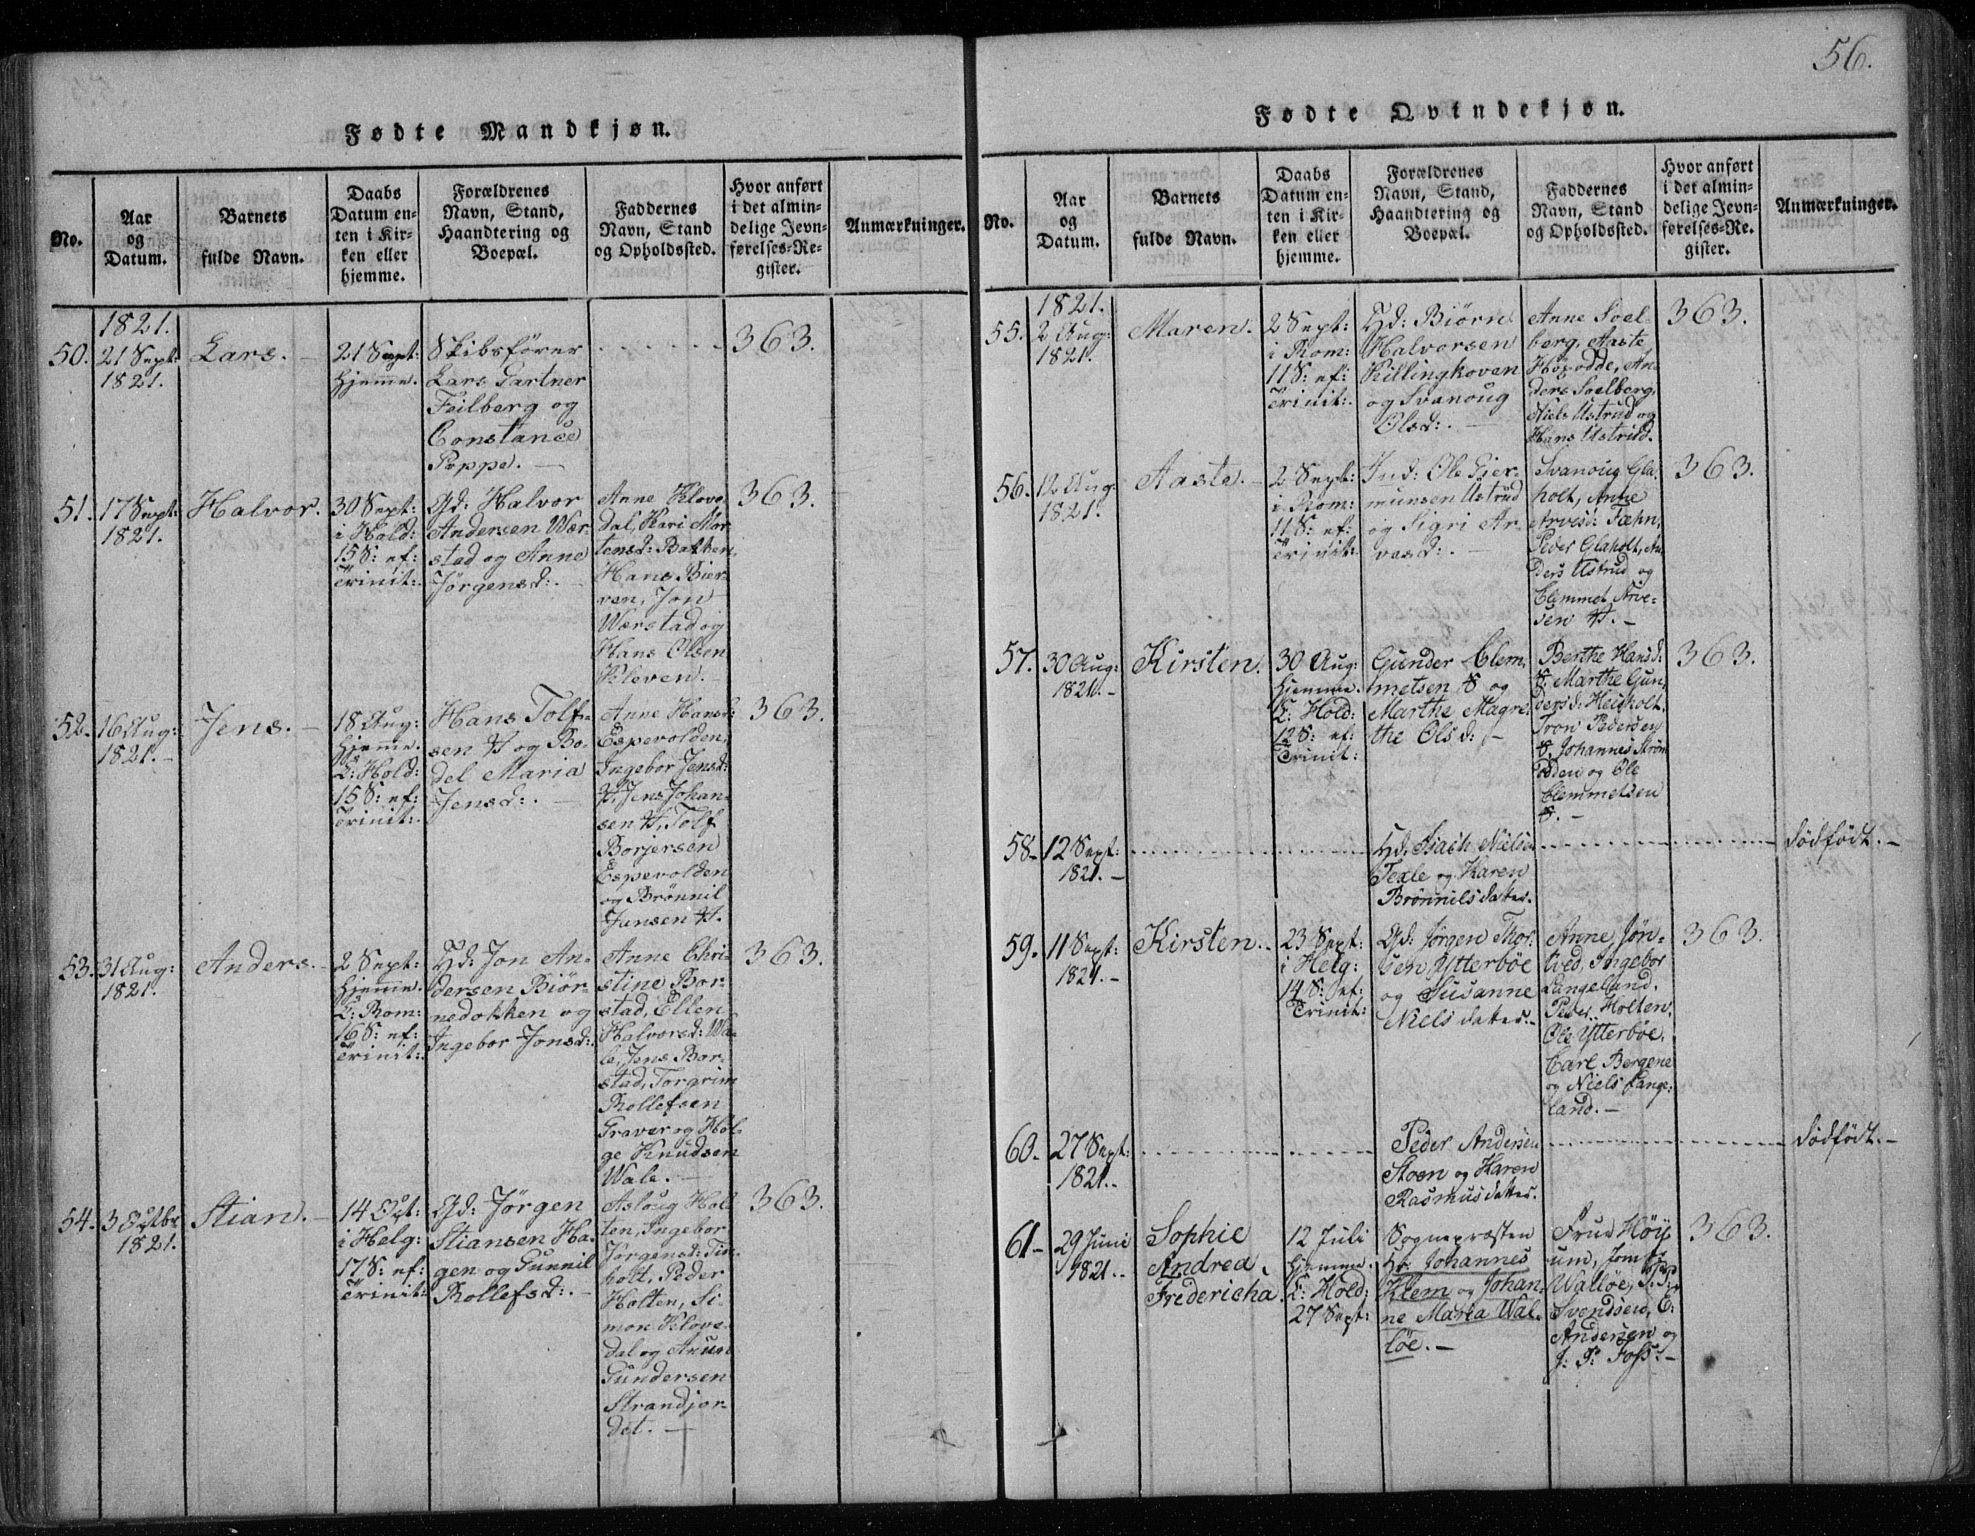 56.
Fødte Mandkjøn.
No.
Aar
og
Datum.
Barnets
fulde Navn.
Daabs
Datum en-
ten i Kir-
ken eller
hjemme.
Forældrenes
Navn, Stand,
Haandtering og
Boepæl.
Faddernes
Navn, Stand
og Opholdssted.
Hvor anført
i det almin-
delige Jevn-
førelses-Re-
gister.
Anmærkninger.
50.
1821.
21 Sept:
1821.
Lars.
21 Sept:
Hjemme.
Skibsfører
Lars Gartner
Feilberg og
Constance
Poppe.
363.
51.
17 Sept:
1821.
Halvor.
30 Sept:
i Hold:
15 S: ef:
Trinit:
Gd: Halvor
Andersen Wær
stad og Anne
Jørgensd:
Anne Klove
dal, Kari Mor
tensd: Bakken,
Hans Bier
ven, Jon
Wærstad og
Hans Olsen
Kleven.
363.
52.
16 Aug:
1821.
Jens.
18 Aug:
hjemme.
E: Hold:
15 S: ef:
Trinit:
Hans Tolf-
sen H og Bo-
del Maria
Jensd:
Anne Hansd:
Espevolden,
Ingebor Jensd:
H, Jens Johan-
sen H, Tolf
Borjersen
Espevolden
og Brønnil
Jansen H.
363.
53.
31 Aug:
1821.
Anders.
2 Sept:
hjemme.
E: Rom:
16 S: ef:
Trinit:
Hd: Jon An-
dersen Biør-
nedokken og
Ingebor Jonsd:
Anne Chri-
stine Bor-
stad, Ellen
Halvorsd: Wa-
le, Jens Bor-
stad, Torgrim
Rollefsen
Graver og Hol-
ge Knudsen
Wale.
363.
54.
3 Octbr
1821.
Stian.
14 Oct:
i Helg:
17 S: ef:
Trinit:
Gd: Jørgen
Stiansen Ha-
gen og Gunnil
Rollefsd:
Asloug Hol-
ten, Ingebor
Jørgensd: Tin-
holt, Peder
Holten, Si-
mon Klove-
dal og Anun
Gundersen
Strandjor-
det.
363.
Fødte Qvindekjøn.
No.
Aar
og
Datum.
Barnets
fulde Navn.
Daabs
Datum en-
ten i Kir-
ken eller
hjemme.
Forældrenes
Navn, Stand,
Haandtering og
Boepæl.
Faddernes
Navn, Stand
og Opholdssted.
Hvor anført
i det almin-
delige Jevn-
førelses-Re-
gister.
Anmærkninger.
55.
1821.
2 Aug:
1821.
Maren.
2 Sept:
i Rom:
11 S: ef:
Trinit:
Hd: Biørn
Halvorsen
Killingkoven
og Svanoug
Olsd:
Anne Soel
berg, Aaste
Hogodde, An-
ders Soelberg,
Niels Ustrud og
Hans Ustrud.
363.
56.
12 Aug:
1821.
Aaste.
2 Sept:
i Rom:
11 S: ef:
Trinit:
Ind: Ole Gier-
munsen Ustrud
og Sigri Ar-
vesd:
Svanoug Gla-
holt, Anne
Arvesd: Fæhn,
Peder Glaholt, An
ders Ustrud og
Clemmet Arve-
sen H.
363.
57.
30 Aug:
1821.
Kirsten.
30 Aug:
hjemme.
E: Hold:
12 S: ef:
Trinit:
Gunder Clem-
metsen S og
Marthe Magre-
the Olsd:
Berthe Hansd:
S, Marthe Gun-
dersd: Heisholt,
Tron Pedersen
S, Johannes Strøm
odden og Ole
Clemmetsen
S.
363.
58.
12 Sept:
1821.
Hd: Isach Nielsen
Texle og Karen
Brønnilsdatter.
dödfödt.
59.
11 Sept:
1821.
Kirsten.
23 Sept:
i Helg:
14 S: ef:
Trinit:
Gd: Jørgen Thor-
sen Ytterbøe
og Susanne
Nielsdatter.
Anne Jøn-
tved, Ingebor
Langeland,
Peder Holten,
Ole Ytterbøe,
Carl Bergene
og Niels Lange-
land.
363.
60.
27 Sept:
1821.
Peder Andersen
Stoen og Karen
Rasmusdatter.
dödfödt.
61.
29 Juni
1821.
Sophie
Andrea
Fredericha.
12 Juli
hjemme.
E: Hold:
27 Sept:
Sognepræsten
Hr. Johannes
Klem og Johan-
ne Maria Wal-
løe.
Frue Höy
um, Jomfr
Walløe, P: P:
Svendsen, E:
Andersen og
J: P: Foss.
363.